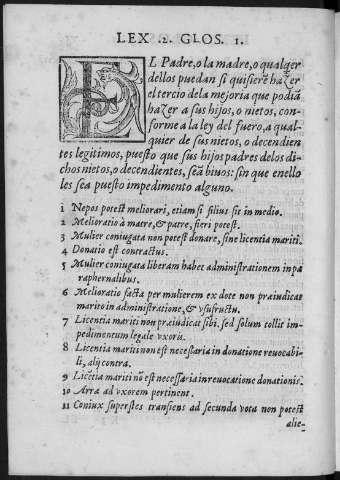 LEX .2. GLOS. 1.
EL Padre, o la madre, o qualqer
dellos puedan si quisierẽ hazer
el tercio dela mejoria que podiã
hazer a sus hijos, o nietos, con-
forme a la ley del fuero, a qual-
quier de sus nietos, o decendien
tes legitimos, puesto que sus hijos padres delos di-
chos nietos, o decendientes, seã biuos: sin que enello
les sea puesto impedimento alguno.
1 Nepos potest meliorari, etiam si filius sit in medio.
2 Melioratio à matre, & patre, fieri potest.
3 Mulier coniugata non potest donare, sine licentia mariti.
4 Donatio est contractus.
5 Mulier coniugata liberam habet administrationem in pa
raphernalibus.
6 Melioratio facta per mulierem ex dote non præiudicat
marito in administratione, & vsufructu.
7 Licentia mariti non præiudicat sibi, sed solum tollit im-
pedimentum legale vxoris.
8 Licentia mariti non est necessaria in donatione reuocabi-
li, alij contra.
9 Licẽtia mariti nõ est necessaria in reuocatione donationis.
10 Arra ad vxorem pertinent.
11 Coniux superstes transiens ad secunda vota non potest
alie-